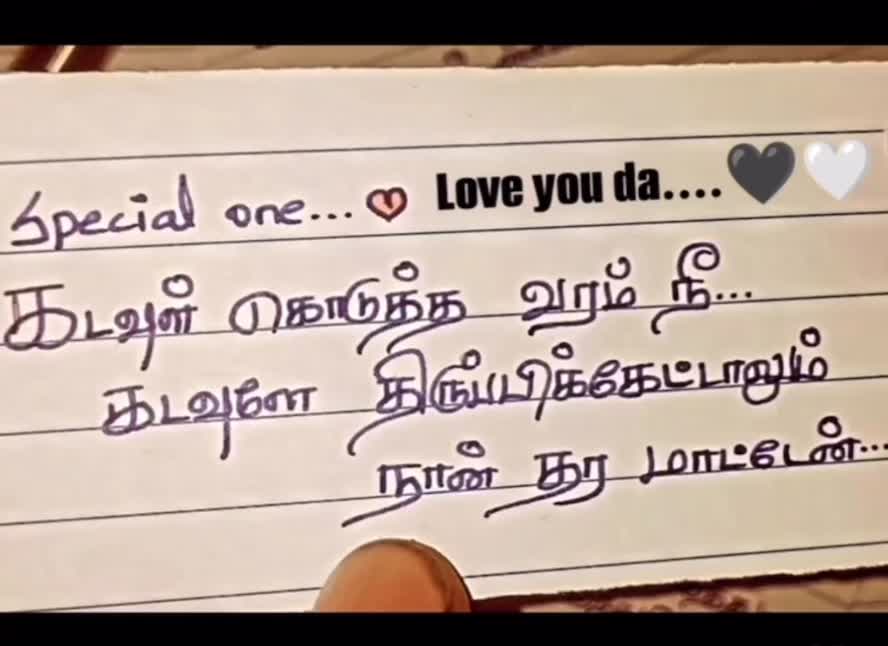 Special one... ❤ Love you da....🖤🤍
கடவுள் கொடுத்த வரம் நீ...
கடவுளே திருப்பிக்கேட்டாலும்
நான் தர மாட்டேன்...